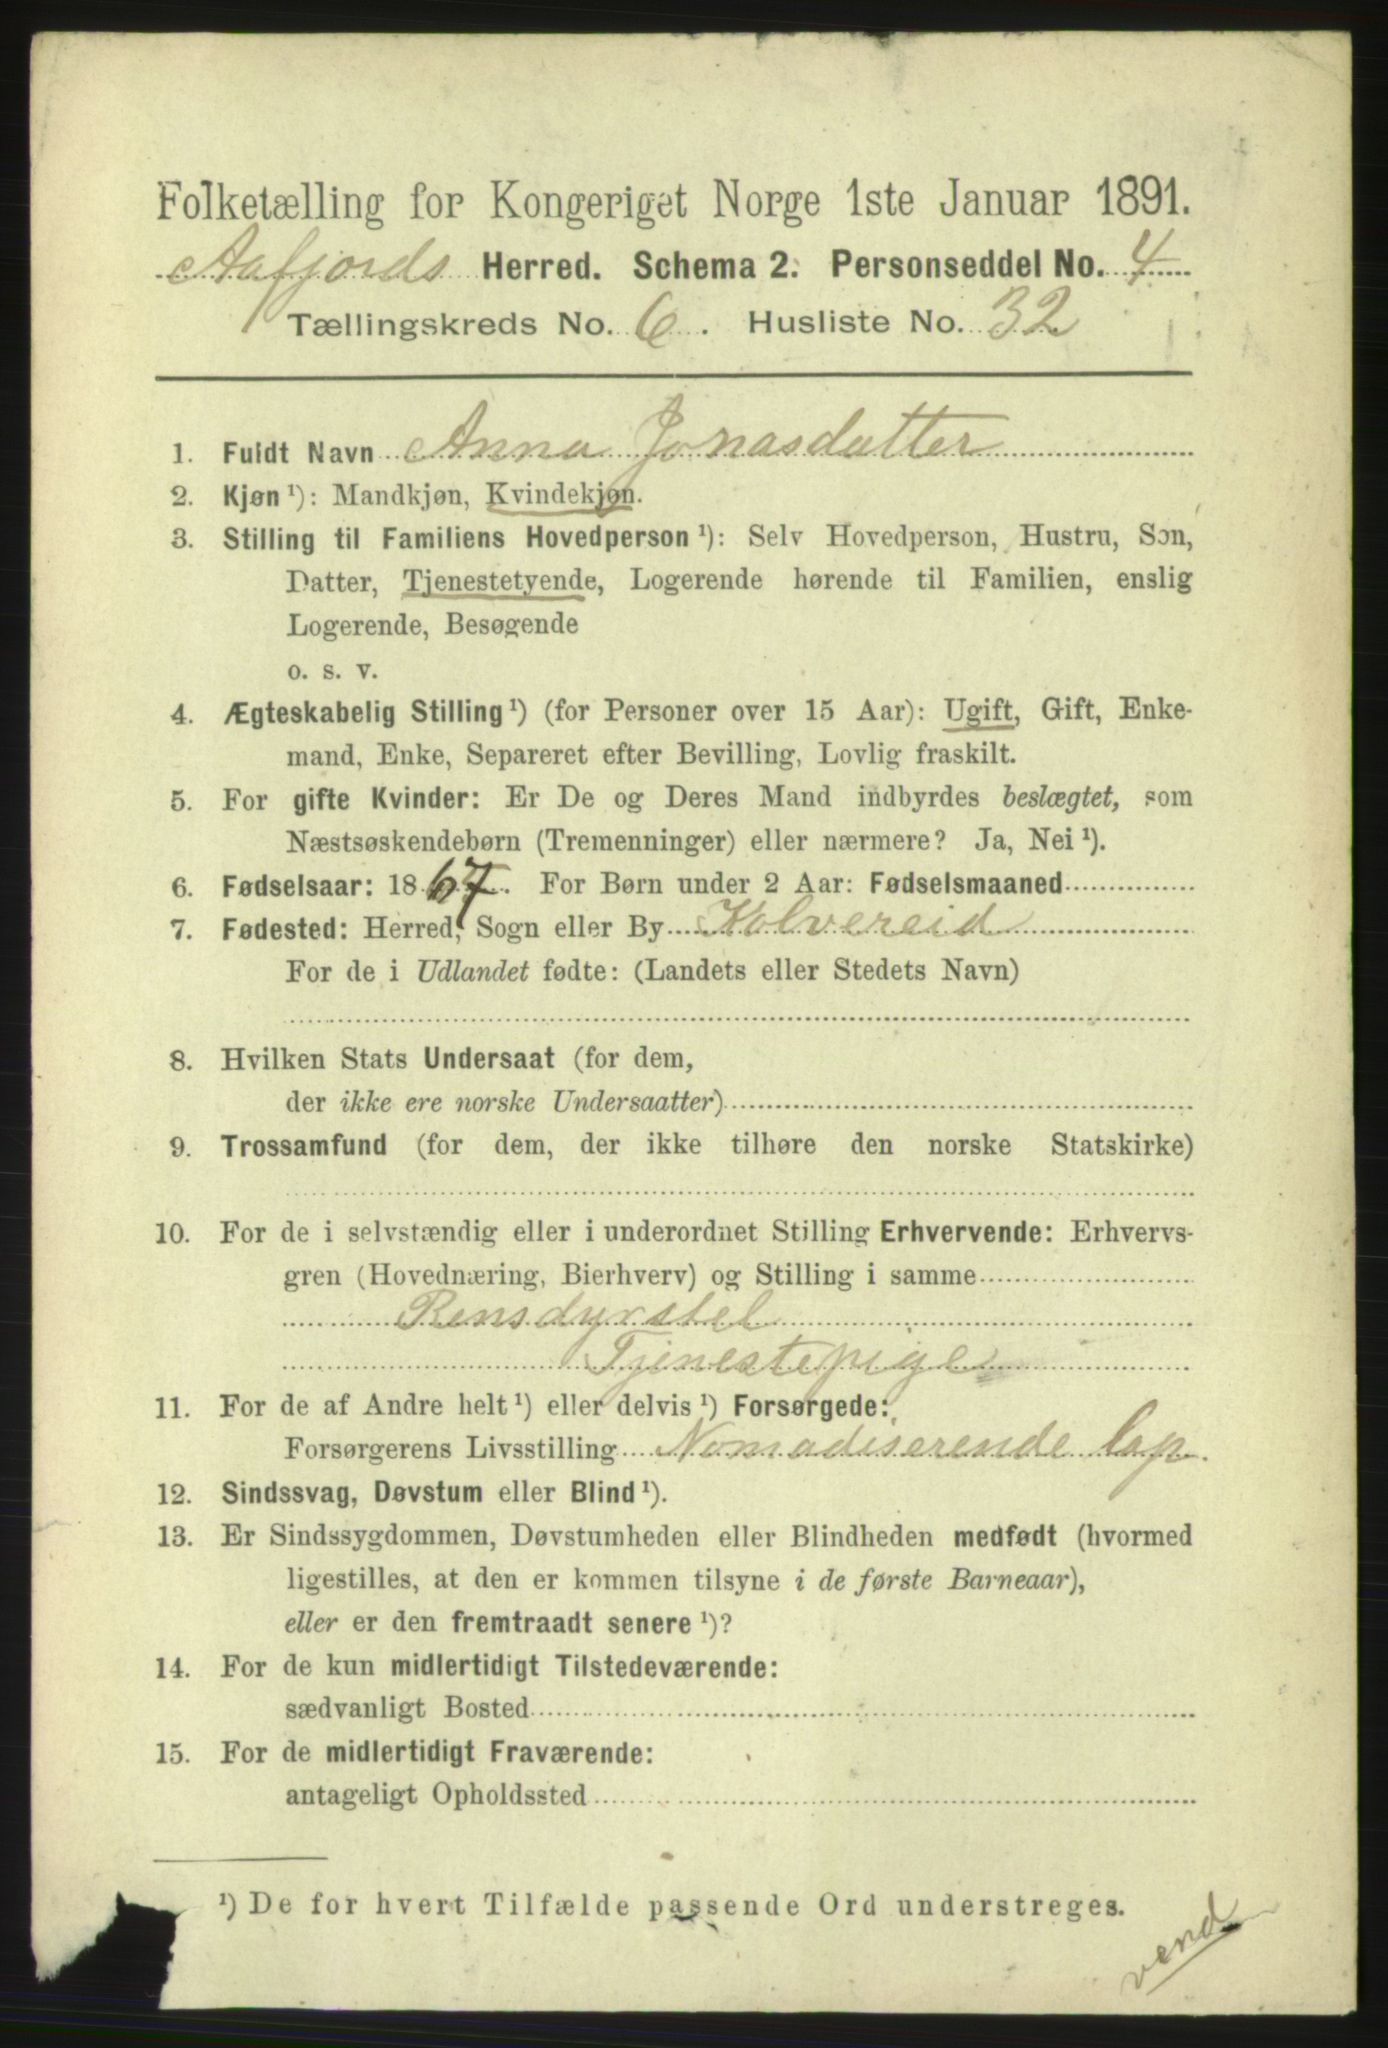 Folketælling for Kongeriget Norge 1ste Januar 1891.
Aafjords Herred. Schema 2. Personseddel No. 4
Tællingskreds No. 6. Husliste No. 32
1. Fuldt Navn Anna Jonasdatter
2. Kjøn ¹): Mandkjøn, Kvindekjøn.
3. Stilling til Familiens Hovedperson ¹): Selv Hovedperson, Hustru, Søn,
Datter, Tjenestetyende, Logerende hørende til Familien, enslig
Logerende, Besøgende
o. s. v.
4. Ægteskabelig Stilling ¹) (for Personer over 15 Aar): Ugift, Gift, Enke-
mand, Enke, Separeret efter Bevilling, Lovlig fraskilt.
5. For gifte Kvinder: Er De og Deres Mand indbyrdes beslægtet, som
Næstsøskendebørn (Tremenninger) eller nærmere? Ja, Nei ¹).
6. Fødselsaar: 1867. For Børn under 2 Aar: Fødselsmaaned
7. Fødested: Herred, Sogn eller By Kolvereid
For de i Udlandet fødte: (Landets eller Stedets Navn)
8. Hvilken Stats Undersaat (for dem,
der ikke ere norske Undersaatter)
9. Trossamfund (for dem, der ikke tilhøre den norske Statskirke)
10. For de i selvstændig eller i underordnet Stilling Erhvervende: Erhvervs-
gren (Hovednæring, Bierhverv) og Stilling i samme
Rensdyrstel
Tjenestepige
11. For de af Andre helt ¹) eller delvis ¹) Forsørgede:
Forsørgerens Livsstilling Nomadiserende lap.
12. Sindssvag, Døvstum eller Blind ¹).
13. Er Sindssygdommen, Døvstumheden eller Blindheden medfødt (hvormed
ligestilles, at den er kommen tilsyne i de første Barneaar),
eller er den fremtraadt senere ¹)?
14. For de kun midlertidigt Tilstedeværende:
sædvanligt Bosted
15. For de midlertidigt Fraværende:
antageligt Opholdssted
¹) De for hvert Tilfælde passende Ord understreges.
vend